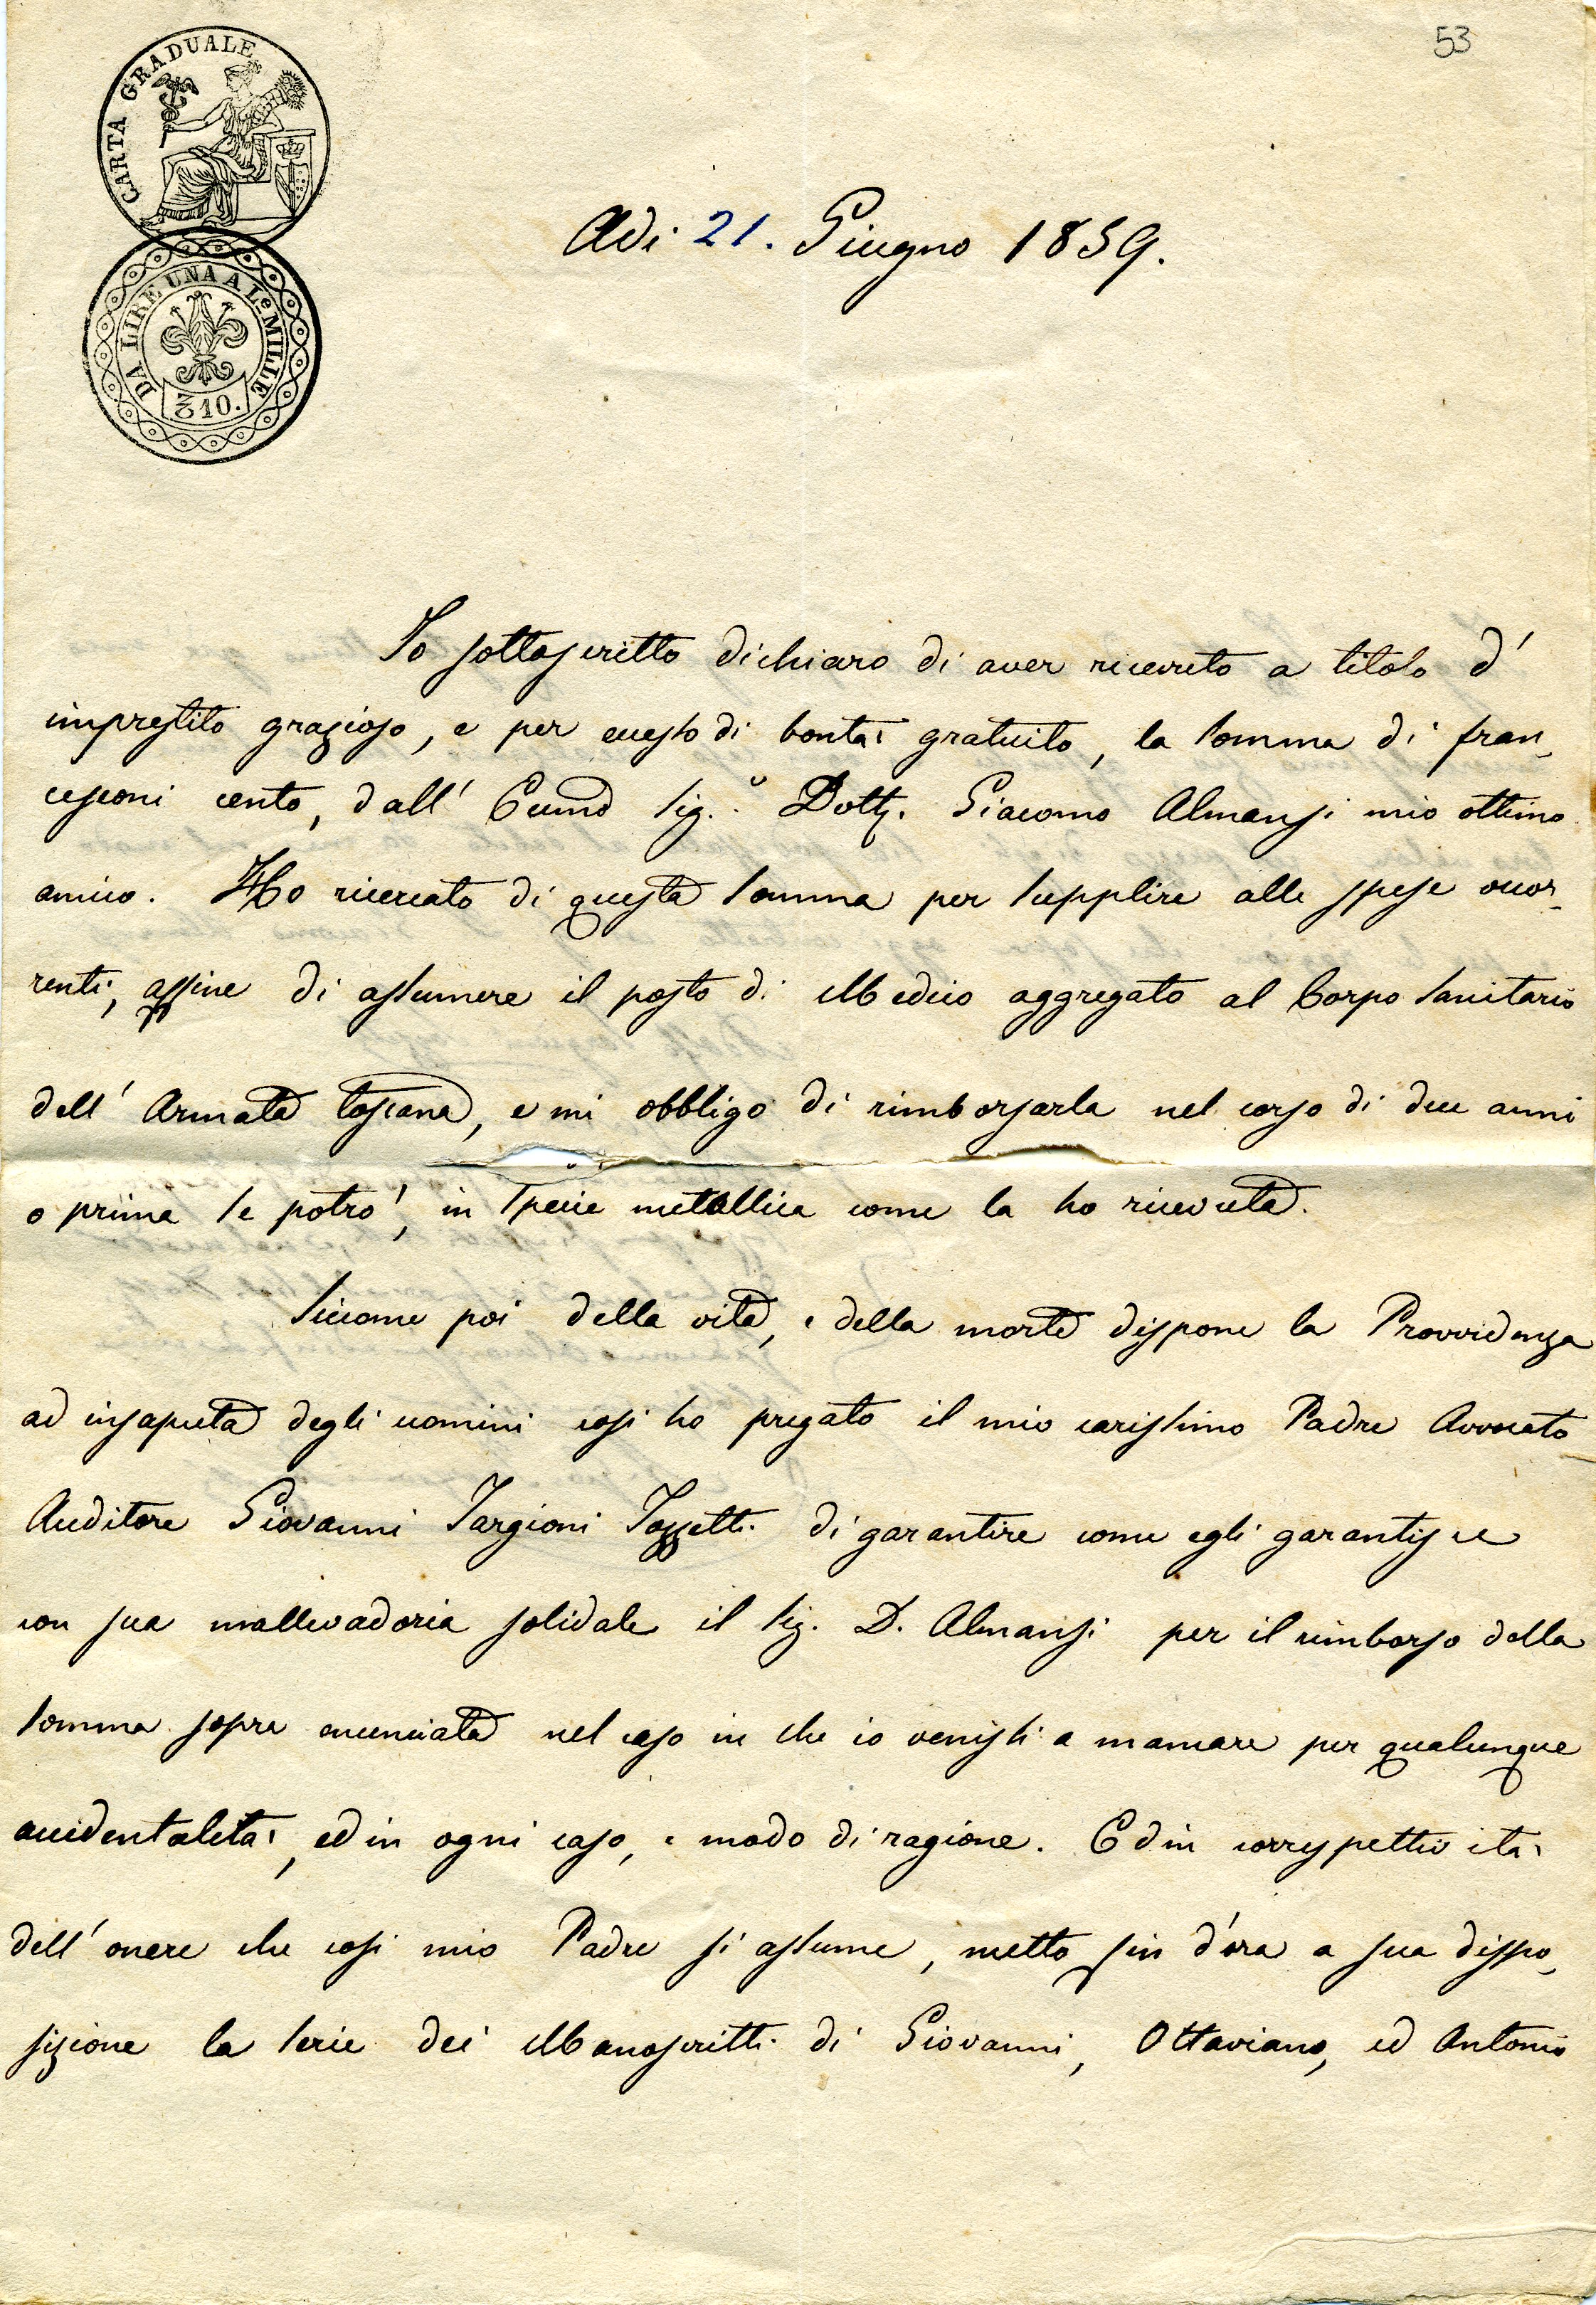 53
CARTA GRADUALE
DA LIRE UNA A L.e MILLE
310.
Adi 21. Giugno 1859.
Io sottoscritto dichiaro di aver ricevuto a titolo d'
imprestito grazioso, e per questo di bontà gratuito, la somma di fran„
cesconi cento, dall' Ecc̄mo Sig.r Dott. Giacomo Almansi mio ottimo
amico. Ho ricercato di questa somma per supplire alle spese occor„
renti, affine di assumere il posto di Medico aggregato al Corpo Sanitario
dell' Armata toscana, e mi obbligo di rimborsarla nel corso di due anni
o prima se potrò, in specie metallica come la ho ricevuta.
Siccome poi della vita, e della morte dispone la Provvidenza
ad insaputa degli uomini così ho pregato il mio carissimo Padre Avvocato
Auditore Giovanni Targioni Tozzetti di garantire come egli garantisce
con sua mallevadoria solidale il Sig. D. Almansi per il rimborso della
somma sopra enunciata nel caso in che io venissi a mancare per qualunque
accidentalità, ed in ogni caso, e modo di ragione. Ed in corrispettività
dell' onere che così mio Padre si assume, metto sin d'ora a sua dispo„
sizione la serie dei Manoscritti di Giovanni, Ottaviano, ed Antonio